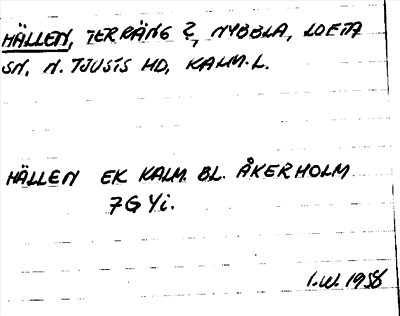 HÄLLEN, TERRÄNG ?, NYBBLA, LOFTA
SN, N. TJUSTS HD, KALM. L.
HÄLLEN EK KALM. BL. ÅKERHOLM
7G Yi.
I.W. 1958